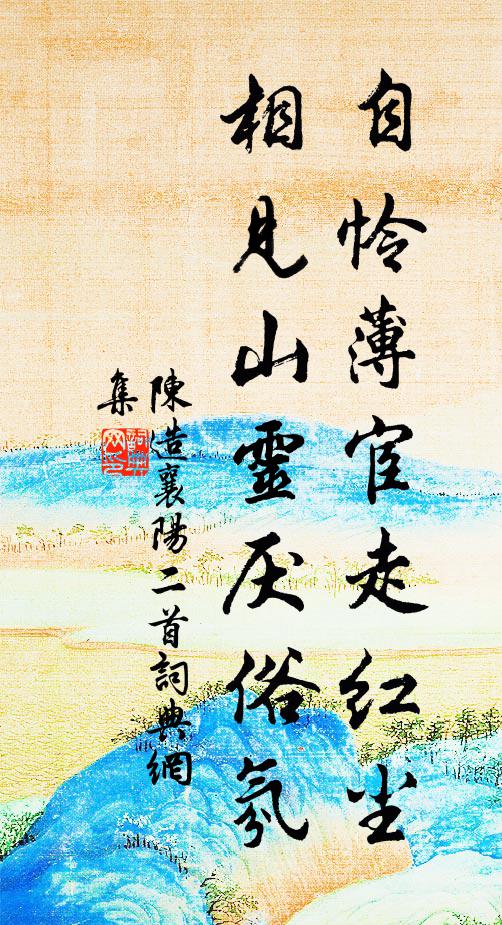 自怜薄官走红尘
相见山靈厌俗氛
陳造襄陽二首詞典網
集